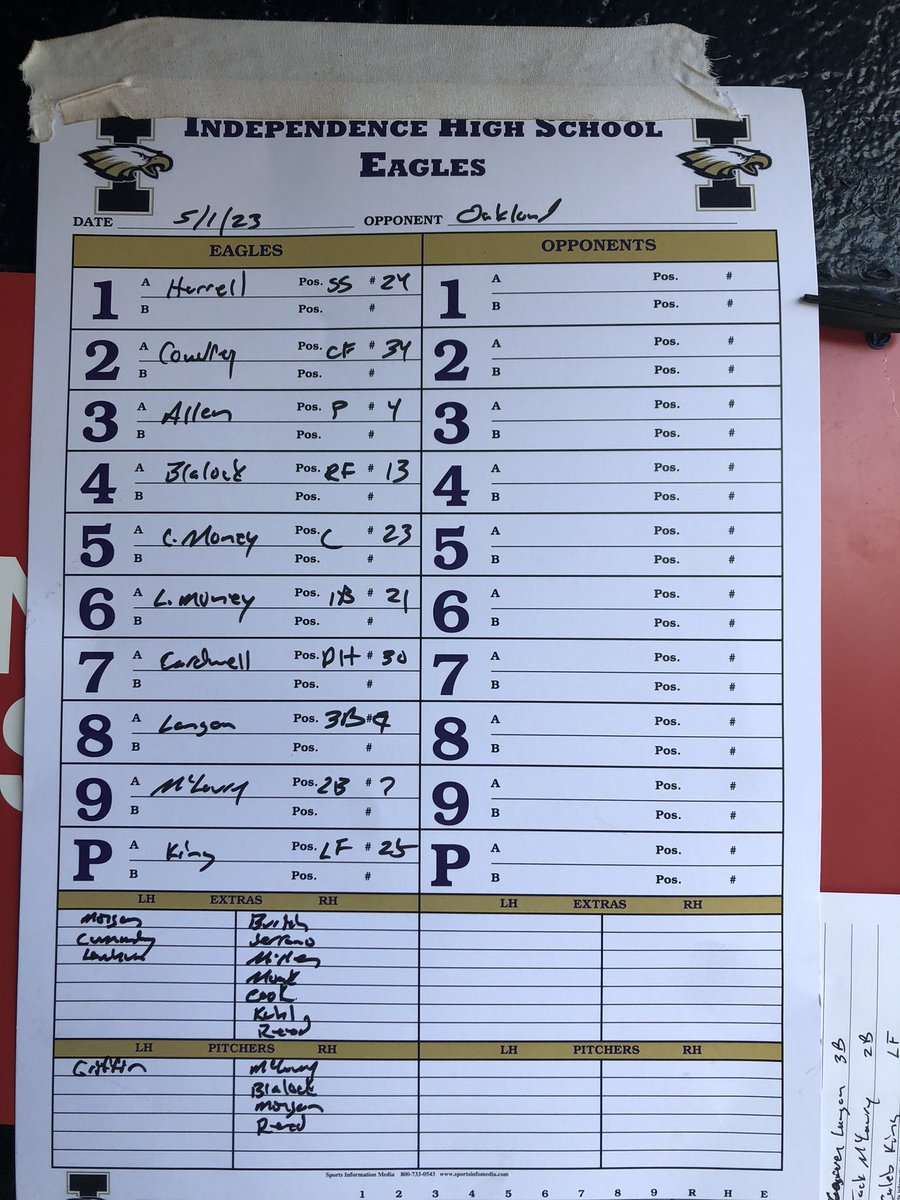 INDEPENDENCE HIGH SCHOOL
EAGLES
DATE 5/1/23 OPPONENT Oakland
EAGLES OPPONENTS
1 A Harrell Pos. SS # 24 1 A Pos. #
B Pos. # B Pos. #
2 A Pos. CF # 34 2 A Pos. #
B Pos. # B Pos. #
3 A Allen Pos. P # 4 3 A Pos. #
B Pos. # B Pos. #
4 A Blalock Pos. RF # 13 4 A Pos. #
B Pos. # B Pos. #
5 A C. Money Pos. C # 23 5 A Pos. #
B Pos. # B Pos. #
6 A L. Money Pos. 1B # 21 6 A Pos. #
B Pos. # B Pos. #
7 A Cardwell Pos. DH # 30 7 A Pos. #
B Pos. # B Pos. #
8 A Langan Pos. 3B # 8 A Pos. #
B Pos. # B Pos. #
9 A McYoury Pos. 2B # 7 9 A Pos. #
B Pos. # B Pos. #
P A King Pos. LF # 25 P A Pos. #
B Pos. # B Pos. #
LH EXTRAS RH LH EXTRAS RH
Morgan
Serrano
Miller
Monk
Cook
Kuhl
Reed
LH PITCHERS RH LH PITCHERS RH
Griffin McYoury
Blalock
Morgan
Reed
Sports Information Media 800-733-0543 www.sportsinfomedia.com
1 2 3 4 5 6 7 8 9 R H E
Langan 3B
McYoury 2B
King LF